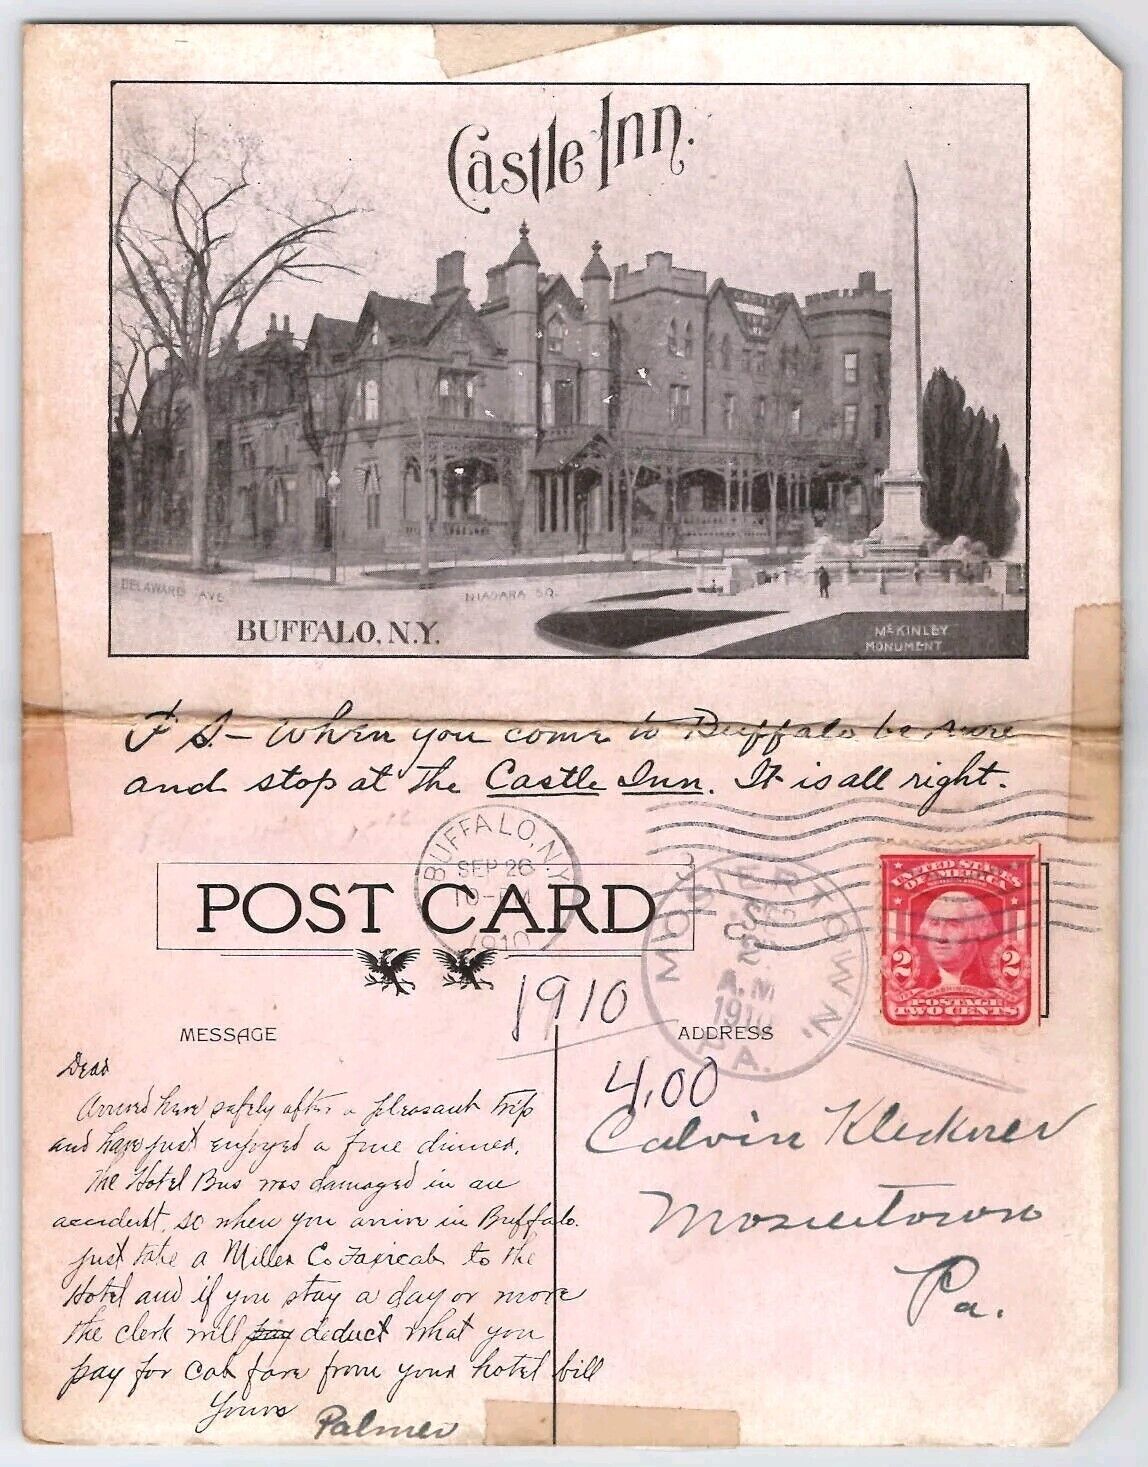 Castle Inn.
DELAWARE AVE
NIAGARA SQ.
BUFFALO, N.Y.
McKINLEY
MONUMENT
P S. – When you come to Buffalo be sure
and stop at the Castle Inn. It is all right.
BUFFALO, N.Y.
SEP 26
10-PM
1910
POST CARD
MOSIERTOWN,
A.M
1910
PA.
UNITED STATES
OF AMERICA
2 2
WASHINGTON
POSTAGE
TWO CENTS
1910
MESSAGE
ADDRESS
4.00
Dear
Arrived here safely after a pleasant trip
and have just enjoyed a fine dinner.
The Hotel Bus was damaged in an
accident, so when you arrive in Buffalo.
just take a Miller Co Taxicab to the
Hotel and if you stay a day or more
the clerk will pay deduct what you
pay for cab fare from your hotel bill
Yours
Palmer
Calvin Kleckner
Mosiertown
Pa.